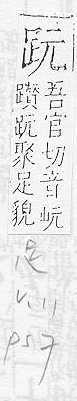 吾官切音岏
躦聚足貌
足
V.11
P57